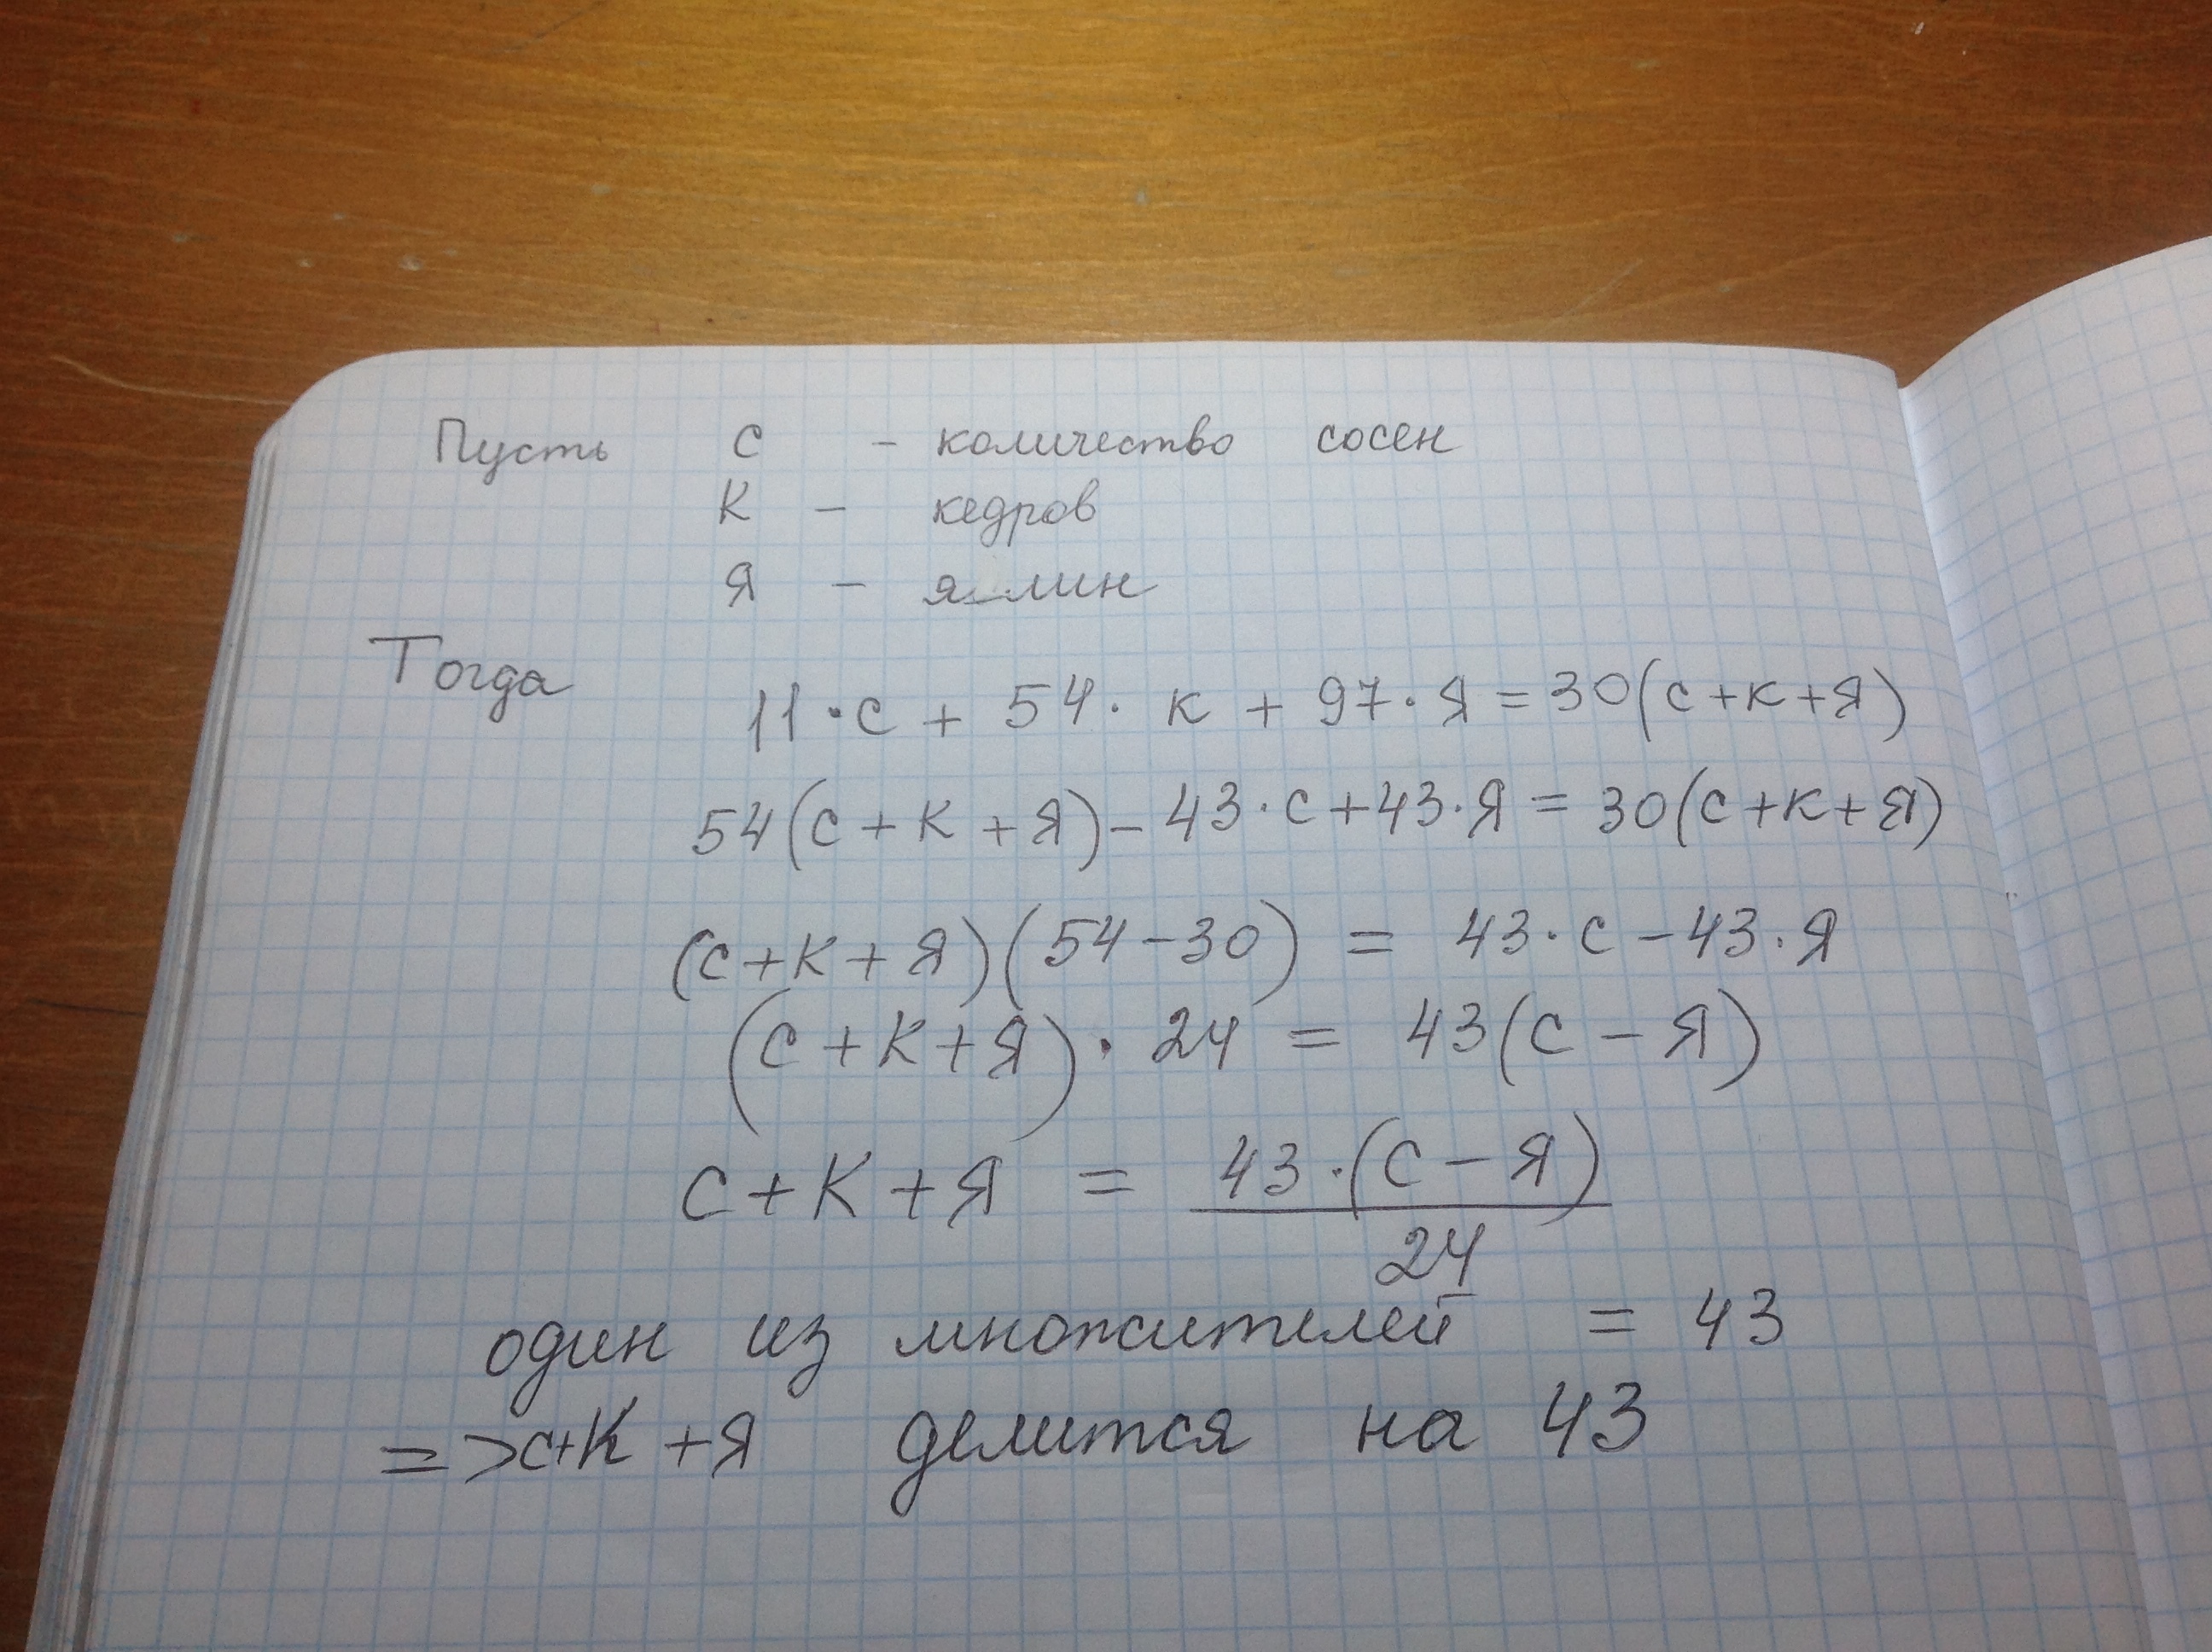 Пусть С - количество сосен
К - кедров
Я - ялин
Тогда
11·с + 54·к + 97·Я = 30(с+к+Я)
54(с+к+Я) - 43·с + 43·Я = 30(с+к+Я)
(с+к+Я)(54-30) = 43·с - 43·Я
(с+к+Я)·24 = 43(с-Я)
с+к+Я = 43·(с-Я)
24
один из множителей = 43
=> с+к+я делится на 43